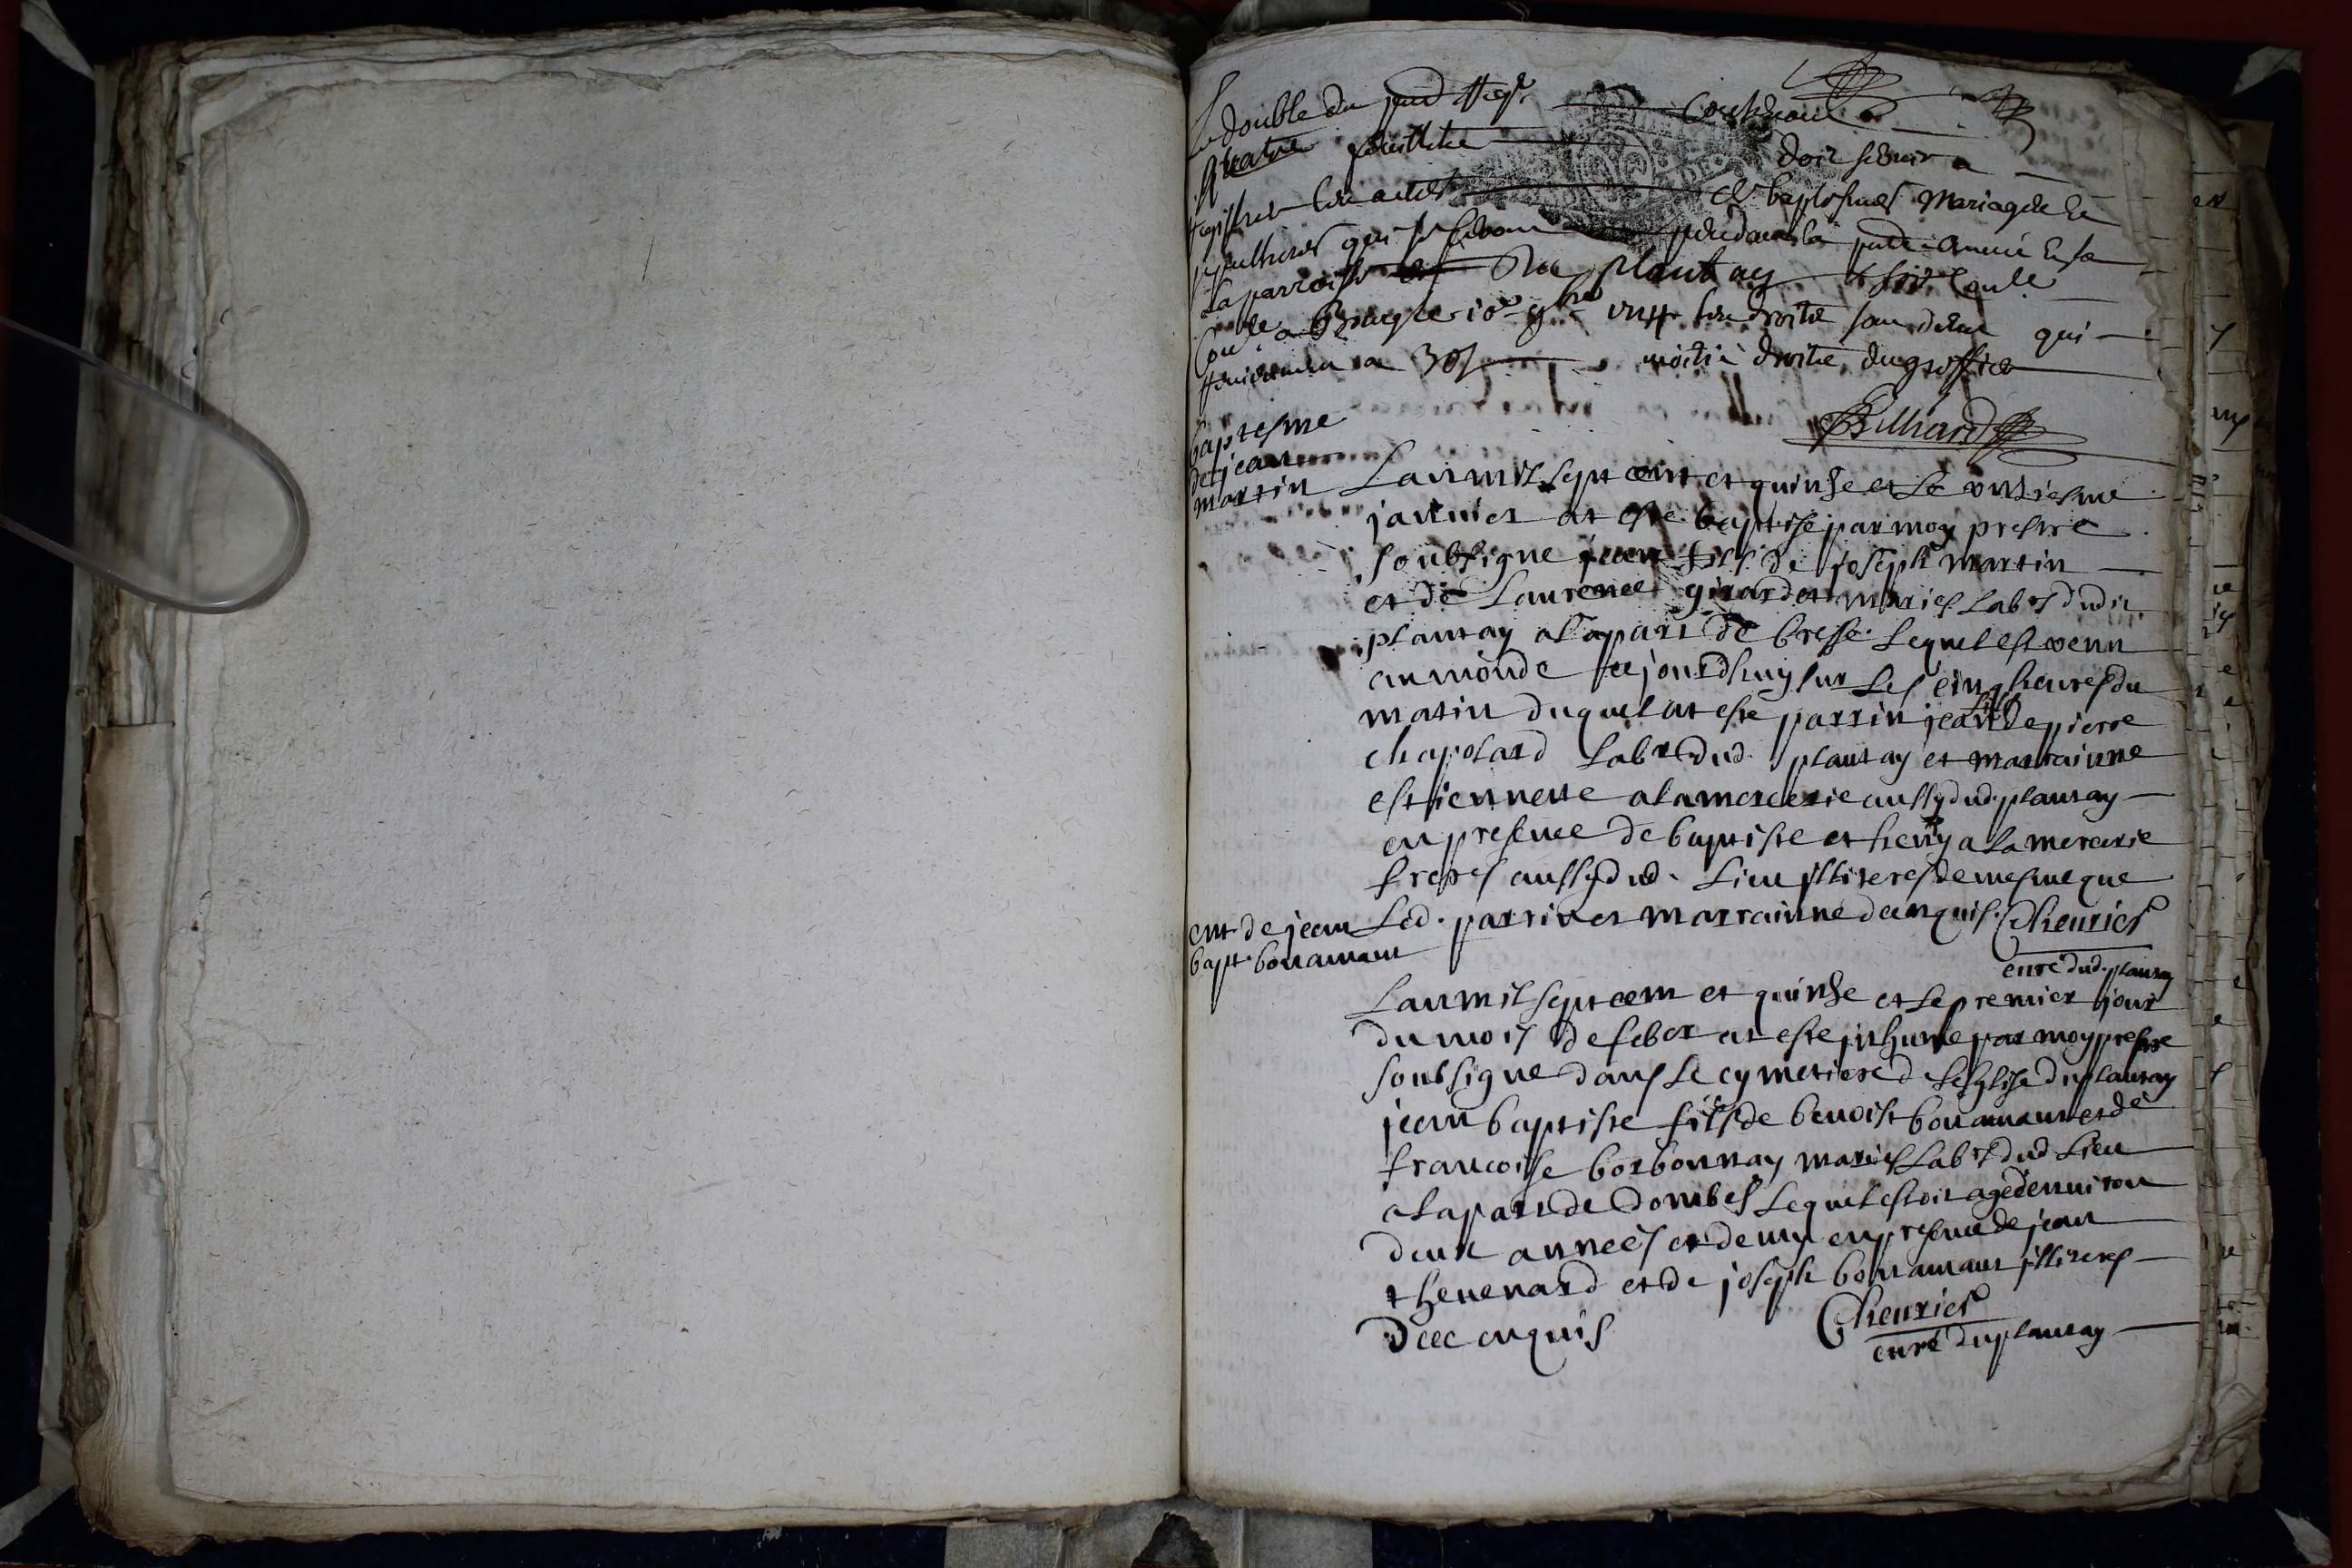 Le double du pnt Regre contenant
quatre feuillets doit servir a
registrer les actes de baptesmes Mariages et
sepultures qui se feront pendant la pnte année en sa
la parroisse du plantay
a Bourg le 10e 9bre les droits qui
reviennent a 30s moitié droits du greffier
Billiard
baptesme
de jean
martin
Lan mil sept cent et quinze et le onziesme
januier at este baptise par moy prestre
soubsigne jean fils de joseph martin
et de Laurence girardet maries labrs dudit
plantay a la part de bresse lequel est venu
au monde ce jourdhuy sur les cinq heures du
matin duquel at este parrin jean fils de pierre
chapolard labr dud. plantay et marrainne
estiennette alamercerie aussy dud. plantay
en presence de baptiste et henry alamercerie
freres aussy dud. lieu jlliteres de mesme que
Led. parrin et marrainne de enquis. Chenrier
curé dud. plantay
ent de jean
bapt. bonamant
Lan mil sept cent et quinze et le premier jour
du mois de febvr at este jnhume par moy prestre
soubsigne dans le cymetiere d leglise du plantay
jean baptiste fils de benoist bonamant et de
francoise borbonnay maries labrs dud lieu
a la part de dombes lequel estoit age denuiron
deux annees et demy en presence de jean
thenenard et de joseph bonamant jlliteres
de ce enquis
Chenrier
curé du plantay